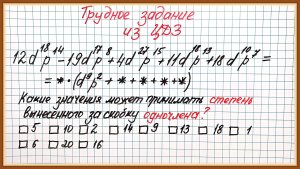 Трудное задание
из ЦДЗ
12d¹⁸p¹⁴-19d¹⁷p⁸+4d²⁷p¹⁵+11d¹⁸p¹³+18d¹⁰p⁷=
=*·(d⁹p²+*+*+*+*)
Какие значения может принимать степень
вынесенного за скобку одночлена?
□5 □10 □2 □14 □9 □13 □18 □1
□6 □20 □16